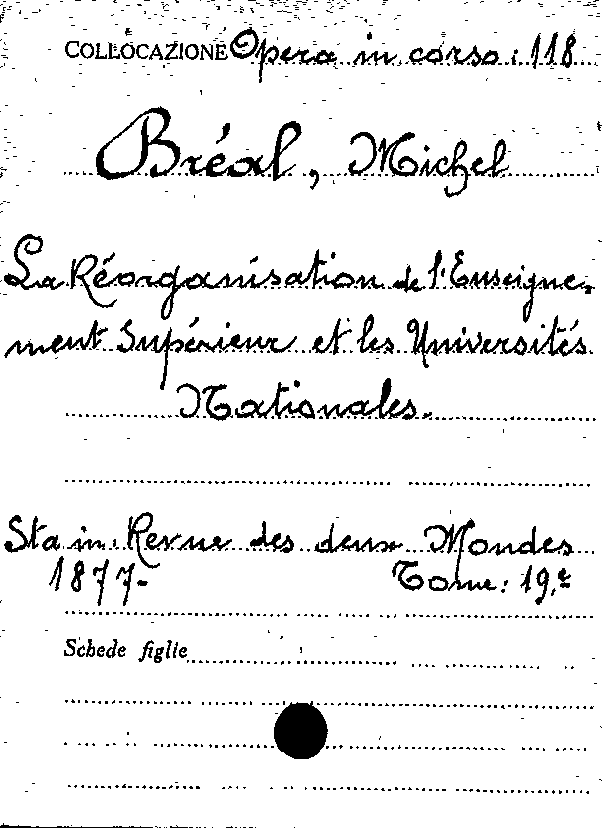 COLLOCAZIONE Opera in corso: 118
Bréal, Michel
La Réorganisation de l'Enseigne-
ment Supérieur et les Universités
Nationales.
Sta in: Revue des deux Mondes
1877- Tome: 19.e
Schede figlie